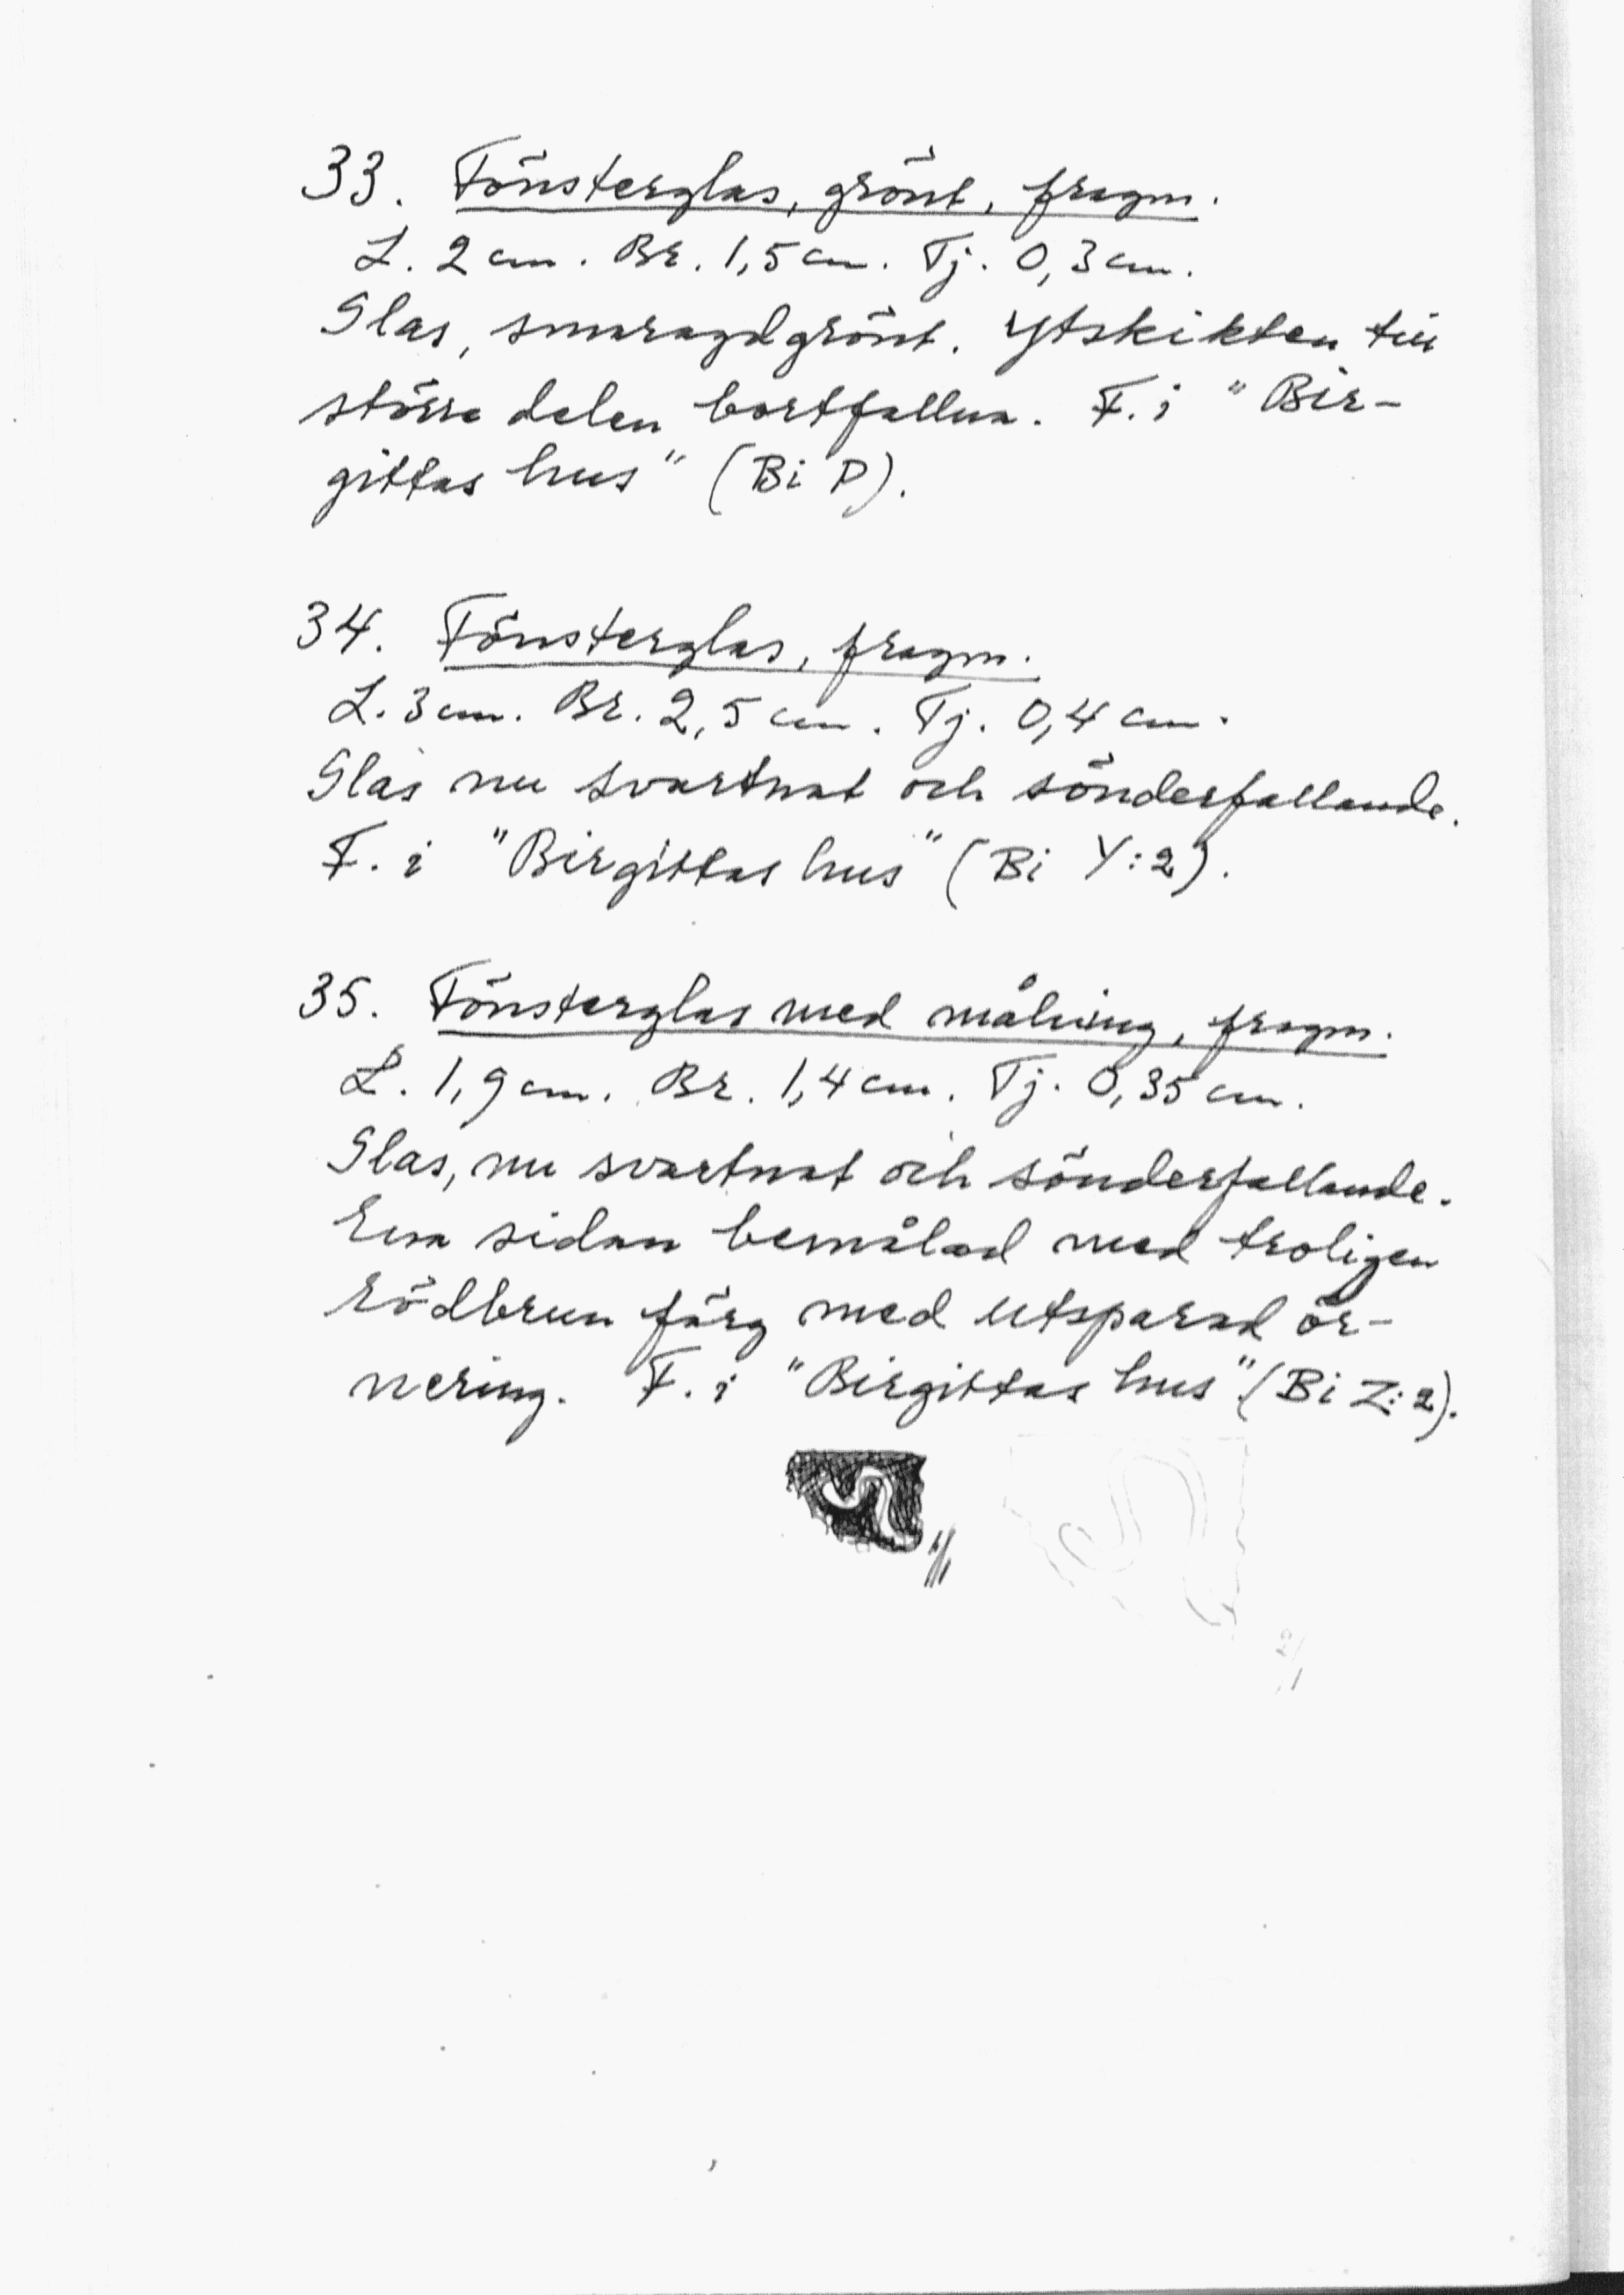 33. Fönsterglas, grönt, fragm.
L. 2 cm. Br. 1,5 cm. Tj. 0,3 cm.
Glas, smaragdgrönt. Ytskikten till
större delen bortfallna. F. i "Bir-
gittas hus" (Bi P).
34. Fönsterglas, fragm.
L. 3 cm. Br. 2,5 cm. Tj. 0,4 cm.
Glas nu svartnat och sönderfallande.
F. i "Birgittas hus" (Bi Y:2).
35. Fönsterglas med målning, fragm.
L. 1,9 cm. Br. 1,4 cm. Tj. 0,35 cm.
Glas, nu svartnat och sönderfallande.
Ena sidan bemålad med troligen
rödbrun färg med utsparad or-
nering. F. i "Birgittas hus" (Bi Z:2).
1/1
2/1